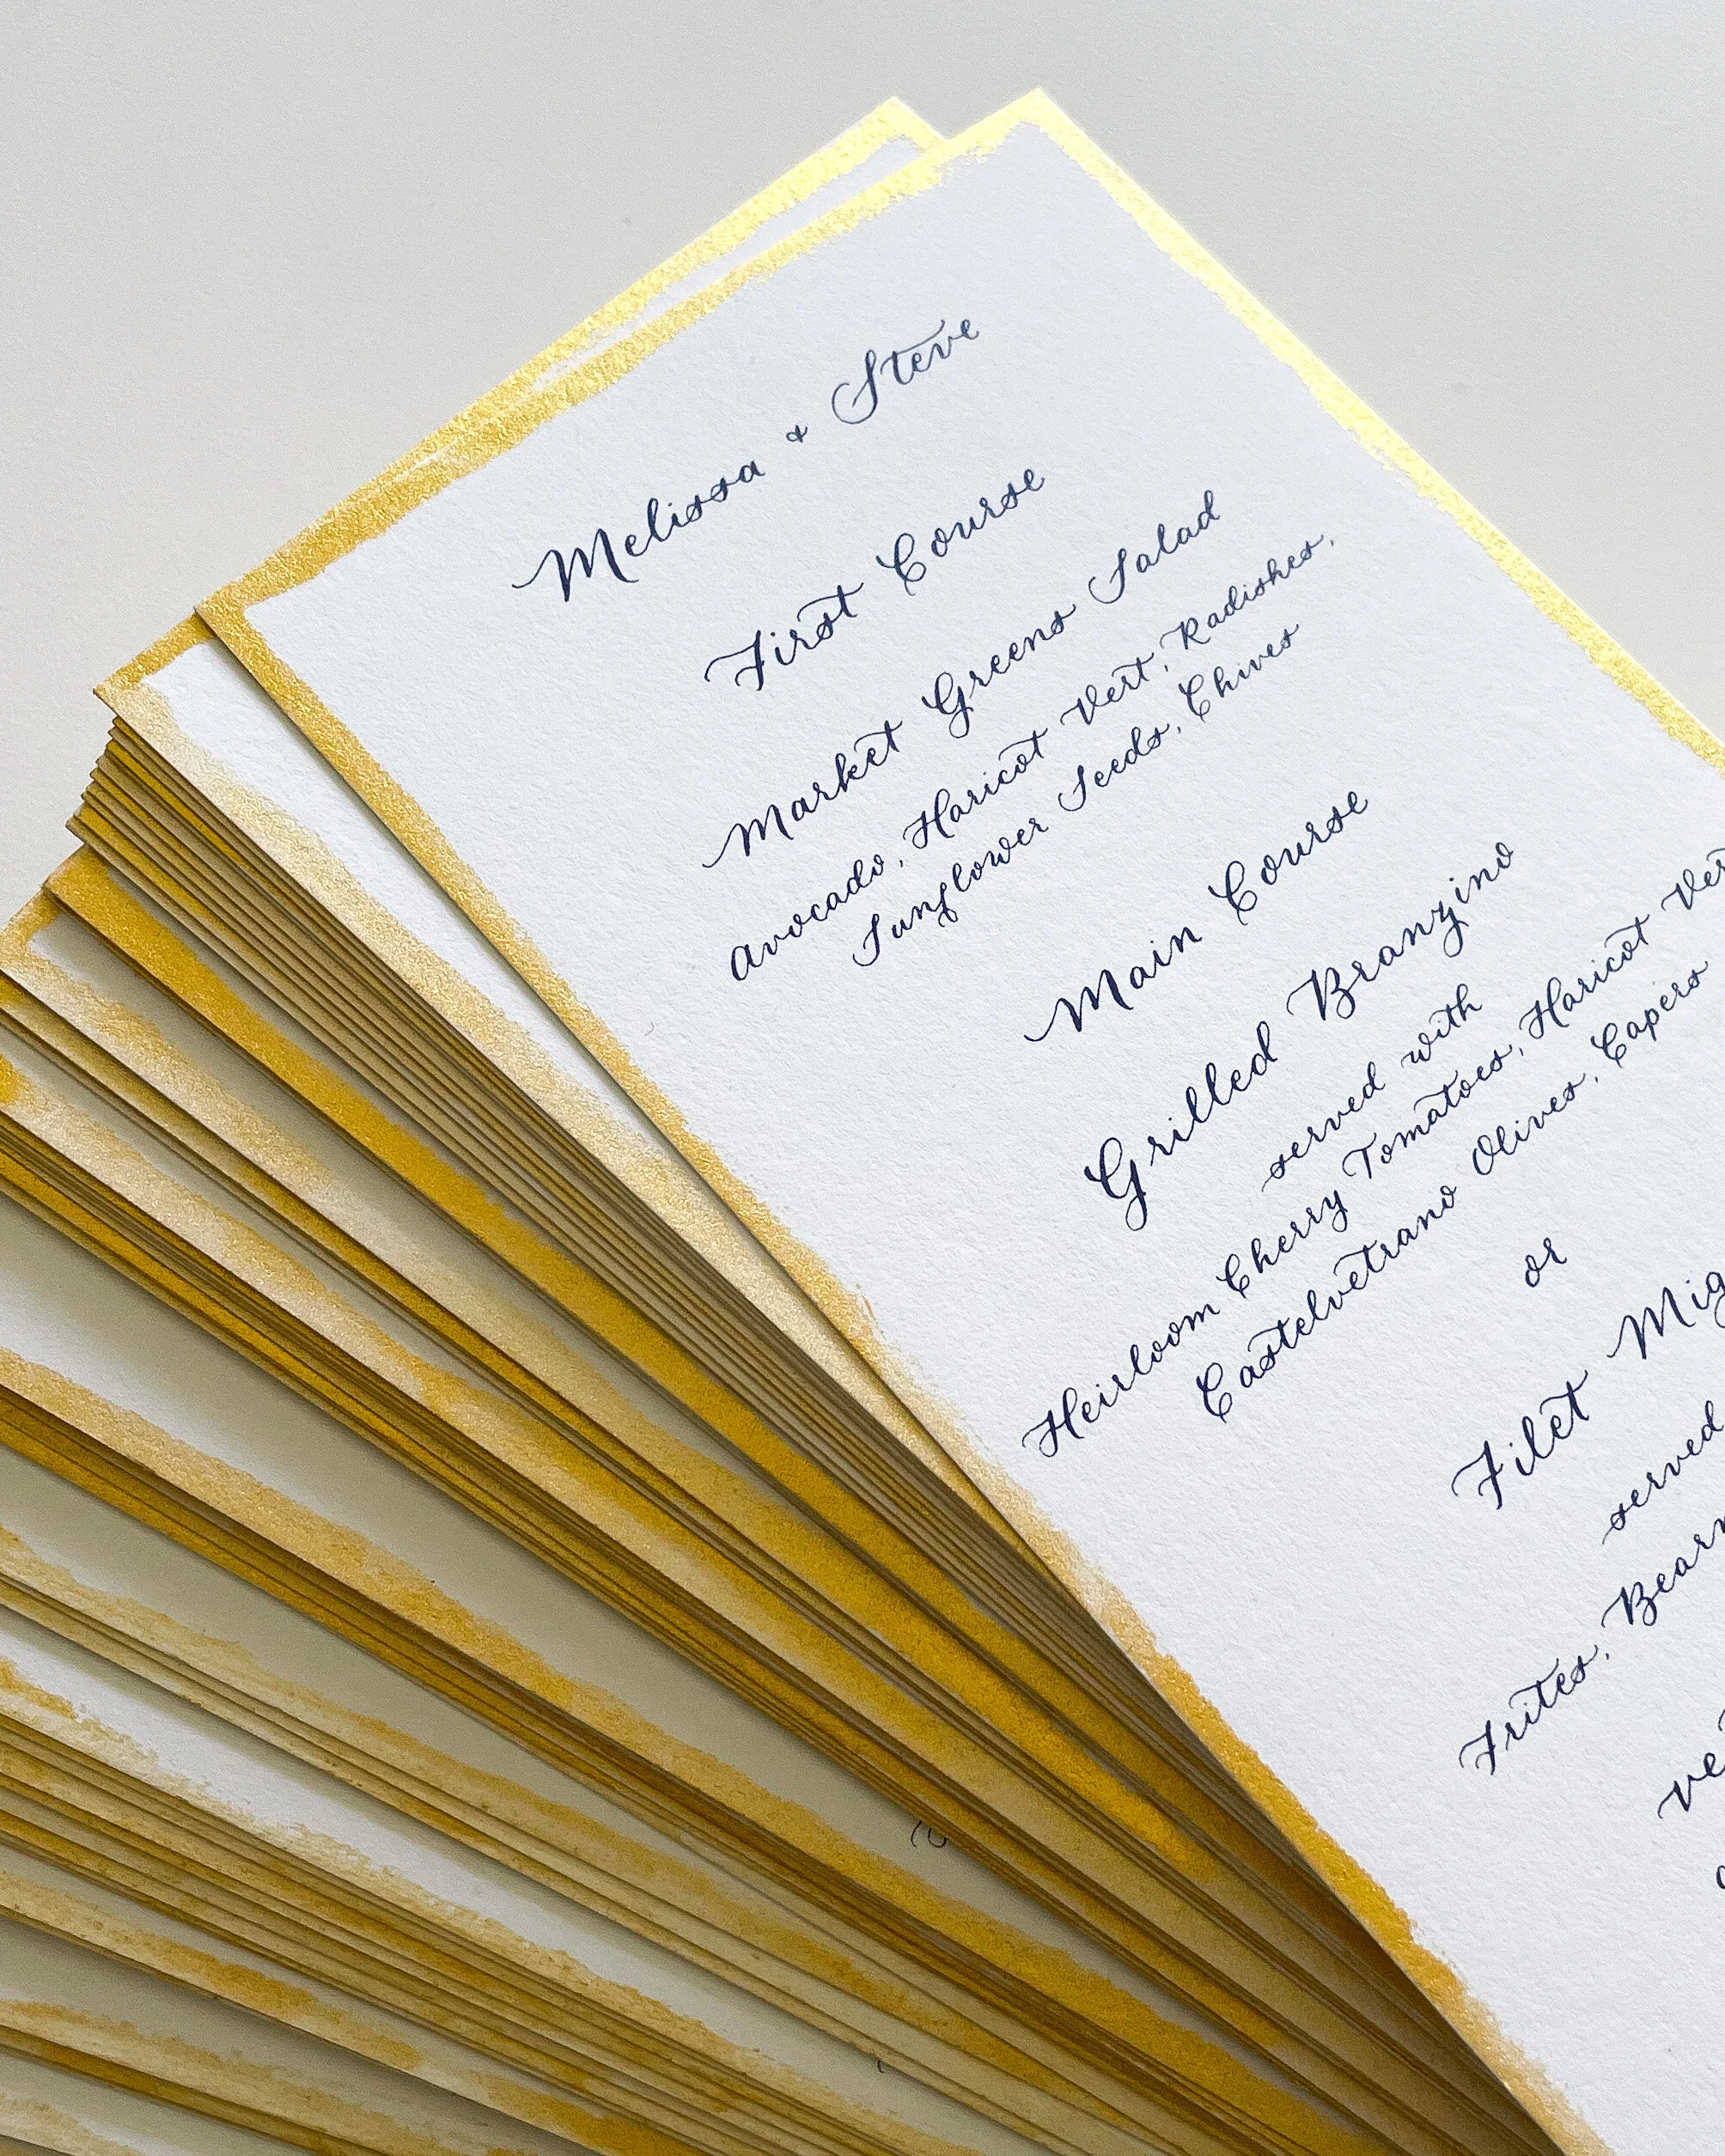 Melissa + Steve
First Course
Market Greens Salad
Avocado, Haricot Vert, Radishes,
Sunflower Seeds, Chives
Main Course
Grilled Branzino
served with
Heirloom Cherry Tomatoes, Haricot Vert
Castelvetrano Olives, Capers
or
Filet Mig
served
Frites, Bearn